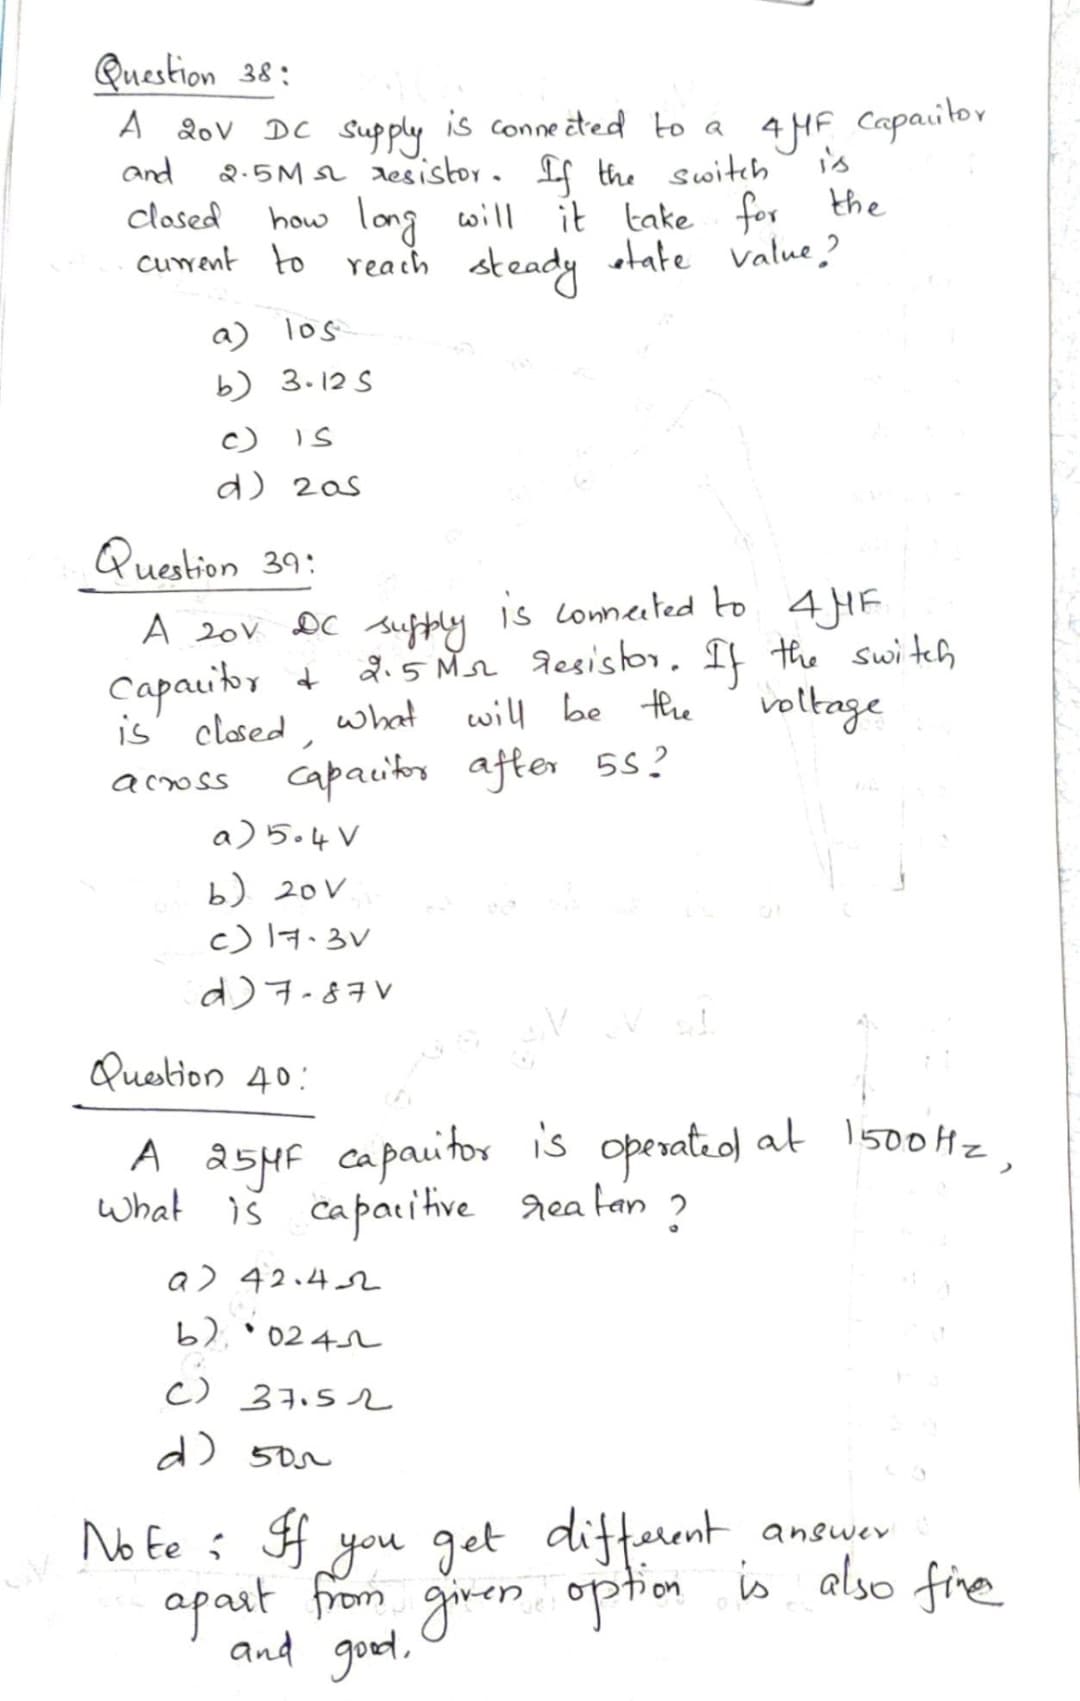 Question 38:
A 20V DC supply is connected to a 4μF capacitor
and 2.5MΩ resistor. If the switch is
closed how long will it take for the
current to reach steady state value?
a) 10s
b) 3.12S
c) 1S
d) 20S
Question 39:
A 20V DC supply is connected to 4μF
capacitor & 2.5MΩ resistor. If the switch
is closed, what will be the voltage
across capacitor after 5S?
a) 5.4V
b) 20V
c) 17.3V
d) 7.87V
Question 40:
A 25μF capacitor is operated at 1500Hz,
What is capacitive reatan?
a) 42.4Ω
b) .024Ω
c) 37.5Ω
d) 50Ω
Note: If you get different answer
apart from given option is also fine
and good.